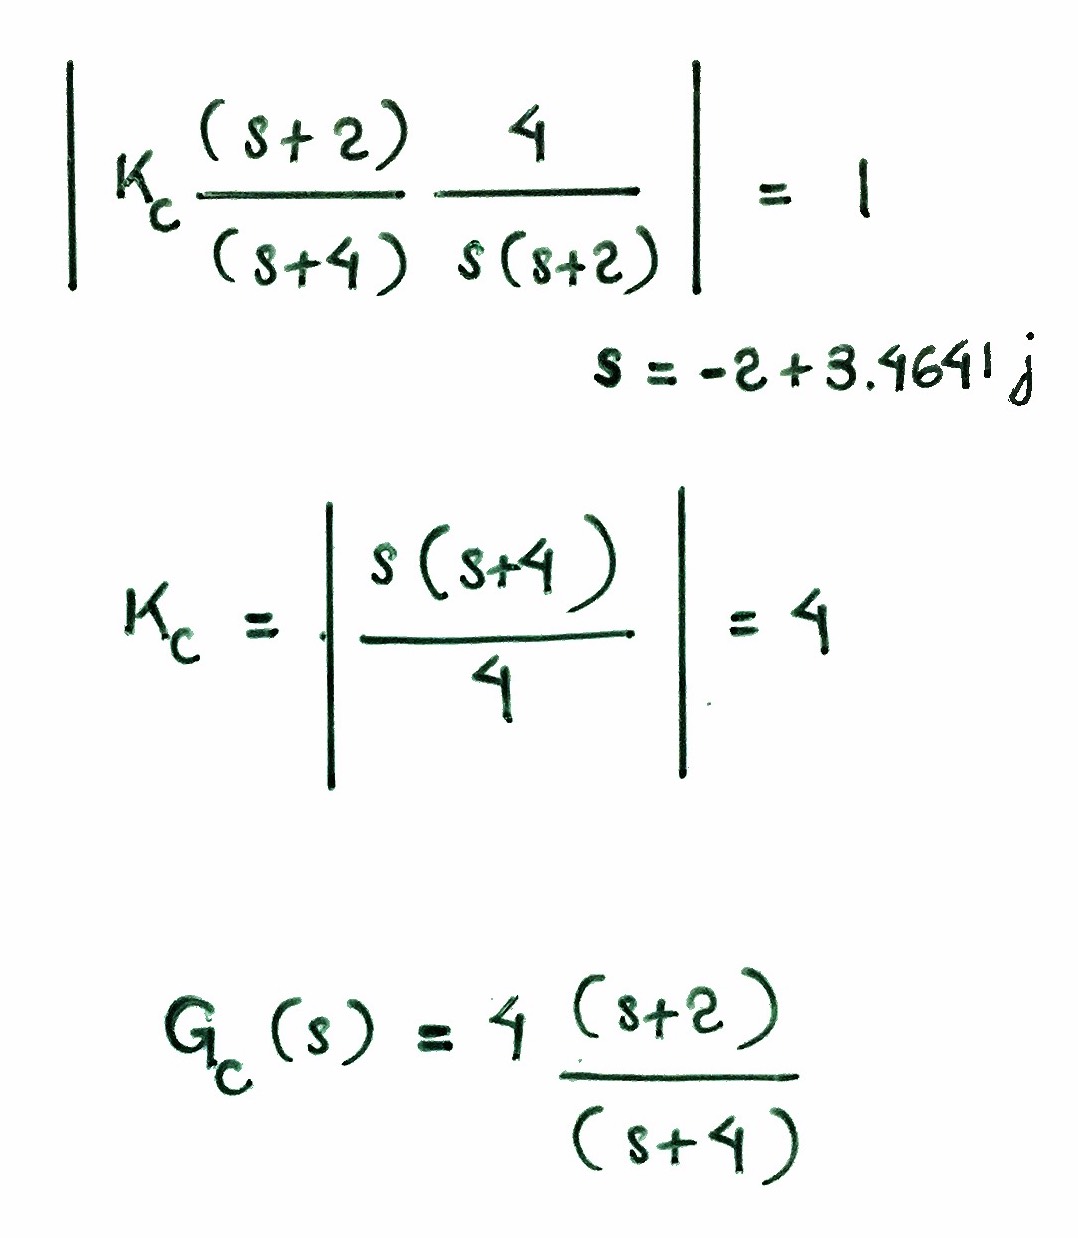 | K_c (s+2)/(s+4) 4/s(s+2) | = 1
s = -2+3.4641j
K_c = | s(s+4)/4 | = 4
G_c(s) = 4 (s+2)/(s+4)